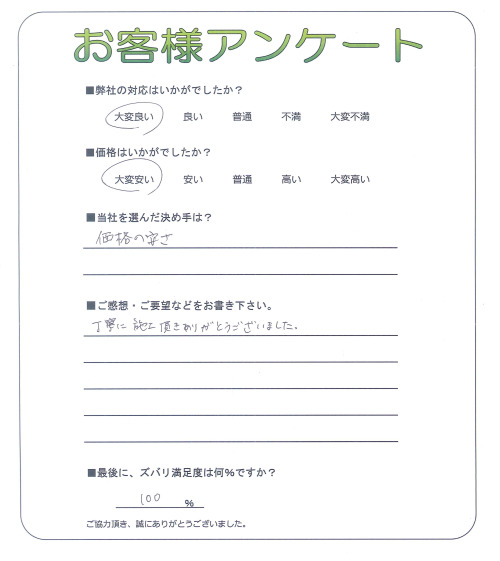 お客様アンケート
■弊社の対応はいかがでしたか?
大変良い 良い 普通 不満 大変不満
■価格はいかがでしたか?
大変安い 安い 普通 高い 大変高い
■当社を選んだ決め手は?
価格の安さ
■ご感想・ご要望などをお書き下さい。
丁寧に施工頂きありがとうございました。
■最後に、ズバリ満足度は何%ですか?
100 %
ご協力頂き、誠にありがとうございました。